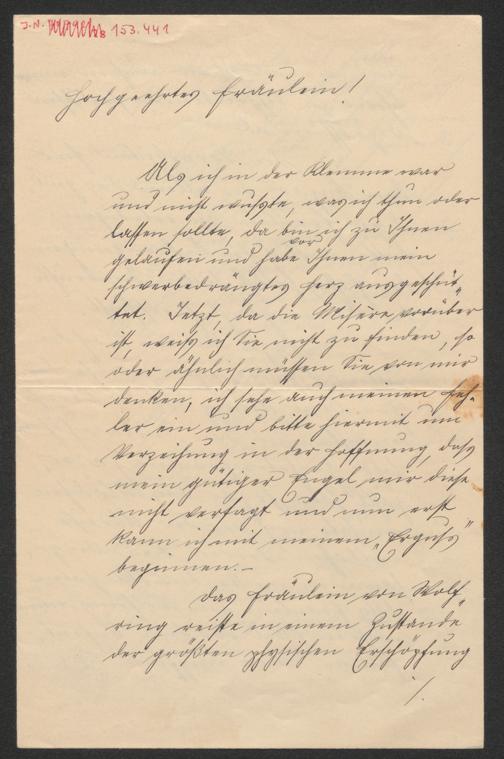 J.N. 153.441
Hochgeehrtes Fräulein!
Als ich in der Klemme war
und nicht wußte, was ich thun oder
lassen sollte, da bin ich zu Ihnen
gelaufen und habe vor Ihnen mein
schwerbedrängtes Herz ausgeschüt-
tet. Jetzt, da die Misere vorüber
ist, weiß ich Sie nicht zu finden, so
oder ähnlich müssen Sie von mir
denken, ich sehe auch meinen Feh-
ler ein und bitte hiermit um
Verzeihung in der Hoffnung, dass
mein gütiger Engel mir diese
nicht versagt und nun erst
kann ich mit meinem „Erguss"
beginnen.–
Das Fräulein von Wolf-
ring reiste in einem Zustande
der größten physischen Erschöpfung
./.